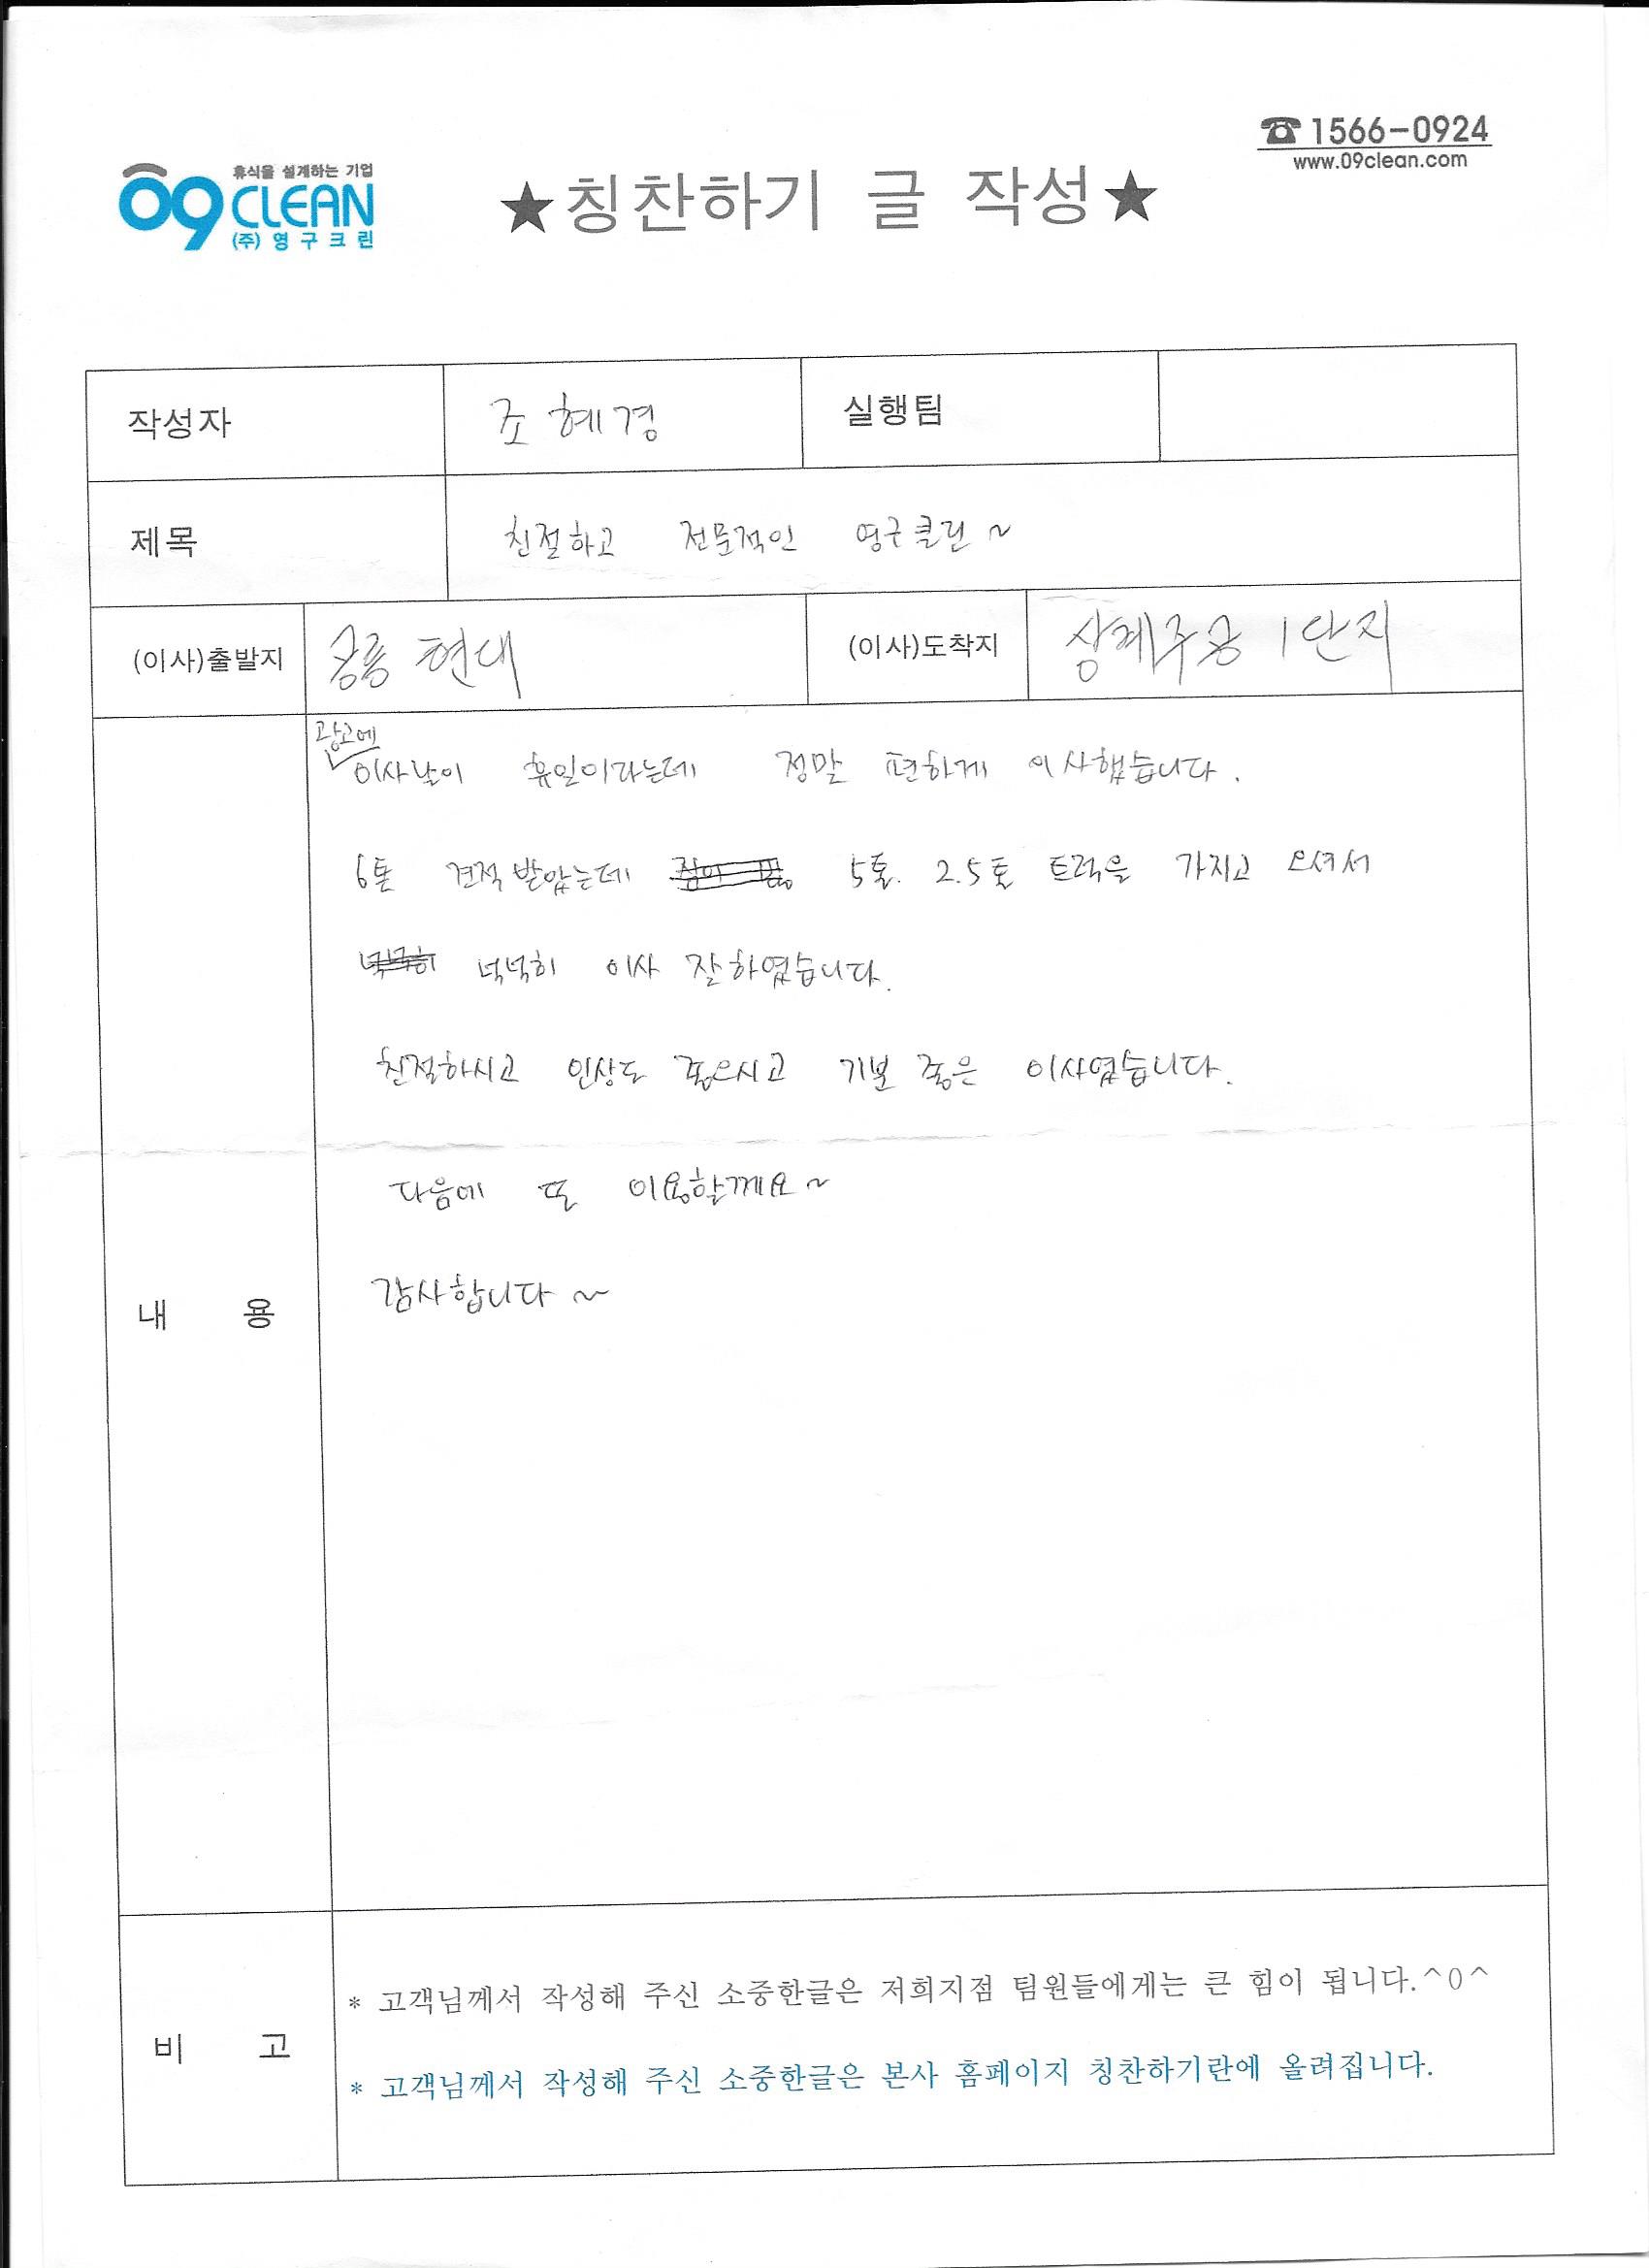 ☎1566-0924
www.09clean.com
휴식을 설계하는 기업
09 CLEAN
(주)영구크린
★칭찬하기 글 작성★
작성자 조혜경 실행팀
제목 친절하고 전문적인 영구클린~
(이사)출발지 공릉 현대 (이사)도착지 상계주공 1단지
광고에
이사날이 휴일이라는데 정말 편하게 이사했습니다.
6톤 견적 받았는데 5톤. 2.5톤 트럭을 가지고 오셔서
넉넉히 넉넉히 이사 잘하였습니다.
친절하시고 인상도 좋으시고 기분 좋은 이사였습니다.
다음에 또 이용할께요~
감사합니다~
내 용
* 고객님께서 작성해 주신 소중한글은 저희지점 팀원들에게는 큰 힘이 됩니다.^0^
비 고
* 고객님께서 작성해 주신 소중한글은 본사 홈페이지 칭찬하기란에 올려집니다.